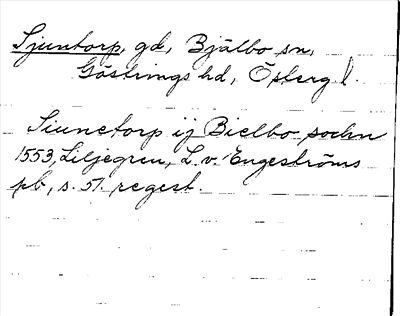 Sjuntorp, gd, Bjälbo sn,
Göstrings hd, Österg l.
Siunetorp ij Bielbo sochn
1553, Liljegren, L. v. Engeströms
pb, s. 51. regest.